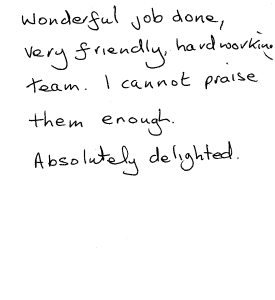 Wonderful job done,
very friendly, hardworking
team. I cannot praise
them enough.
Absolutely delighted.